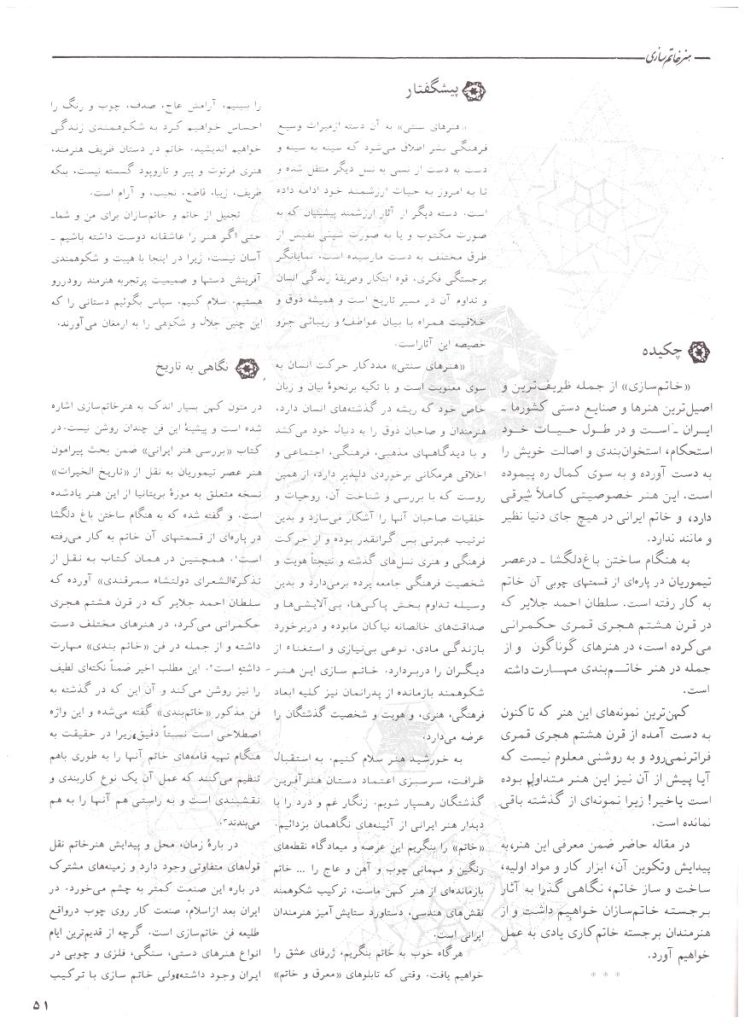 هنر خاتم‌سازی
چکیده
«خاتم‌سازی» از جمله ظریف‌ترین و
اصیل‌ترین هنرها و صنایع دستی کشورما ـ
ایران ـ است و در طول حیات خود
استحکام، استخوان‌بندی و اصالت خویش را
به دست آورده و به سوی کمال ره پیموده
است. این هنر خصوصیتی کاملاً شرقی
دارد، و خاتم ایرانی در هیچ جای دنیا نظیر
و مانند ندارد.
به هنگام ساختن باغ‌دلگشا ـ درعصر
تیموریان در پاره‌ای از قسمتهای چوبی آن خاتم
به کار رفته است. سلطان احمد جلایر که
در قرن هشتم هجری قمری حکمرانی
می‌کرده است، در هنرهای گوناگون و از
جمله در هنر خاتم‌بندی مهارت داشته
است.
کهن‌ترین نمونه‌های این هنر که تاکنون
به دست آمده از قرن هشتم هجری قمری
فراترنمی‌رود و به روشنی معلوم نیست که
آیا پیش از آن نیز این هنر متداول بوده
است یاخیر! زیرا نمونه‌ای از گذشته باقی
نمانده است.
در مقاله حاضر ضمن معرفی این هنر، به
پیدایش وتکوین آن، ابزار کار و مواد اولیه،
ساخت و ساز خاتم، نگاهی گذرا به آثار
برجسته خاتم‌سازان خواهیم داشت و از
هنرمندان برجسته خاتم‌کاری یادی به عمل
خواهیم آورد.
* * *
پیشگفتار
«هنرهای سنتی» به آن دسته ازمیراث وسیع
فرهنگی بشر اطلاق می‌شود که سینه به سینه و
دست به دست از نسلی به نسل دیگر منتقل شده و
تا به امروز به حیات ارزشمند خود ادامه داده
است. دسته دیگر از آثار ارزشمند پیشینیان که به
صورت مکتوب و یا به صورت شیئی نفیس از
طرق مختلف به دست مارسیده است، نمایانگر
برجستگی فکری، قوه ابتکار وطریقهٔ زندگی انسان
و تداوم آن در مسیر تاریخ است و همیشه ذوق و
خلاقیت همراه با بیان عواطف و زیبائی جزو
خصیصه این آثاراست.
«هنرهای سنتی» مددکار حرکت انسان به
سوی معنویت است و با تکیه برنحوهٔ بیان و زبان
خاص خود که ریشه در گذشته‌های انسان دارد،
هنرمندان و صاحبان ذوق را به دنبال خود می‌کشد
و با دیدگاههای مذهبی، فرهنگی، اجتماعی و
اخلاقی هرمکانی برخوردی دلپذیر دارد، از همین
روست که با بررسی و شناخت آن، روحیات و
خلقیات صاحبان آنها را آشکار می‌سازد و بدین
ترتیب عبرتی بس گرانقدر بوده و از حرکت
فرهنگی و هنری نسل‌های گذشته و نتیجتاً هویت و
شخصیت فرهنگی جامعه پرده برمی‌دارد و بدین
وسیله تداوم بخش پاکی‌ها، بی‌آلایشی‌ها و
صداقت‌های خالصانه نیاکان مابوده و دربرخورد
بازندگی مادی، نوعی بی‌نیازی و استغناء از
دیگران را دربردارد. خاتم سازی این هنر
شکوهمند بازمانده از پدرانمان نیز کلیه ابعاد
فرهنگی، هنری، و هویت و شخصیت گذشتگان را
عرضه می‌دارد.
به خورشید هنر سلام کنیم. به استقبال
ظرافت، سرسبزی اعتماد دستان هنرآفرین
گذشتگان رهسپار شویم. زنگار غم و درد را با
دیدار هنر ایرانی از آئینه‌های نگاهمان بزدائیم.
«خاتم» را بنگریم این عرصه و میعادگاه نقطه‌های
رنگین و مهمانی چوب و آهن و عاج را ... خاتم
بازمانده‌ای از هنر کهن ماست، ترکیب شکوهمند
نقش‌های هندسی، دستاورد ستایش آمیز هنرمندان
ایرانی است.
هرگاه خوب به خاتم بنگریم، ژرفای عشق را
خواهیم یافت. وقتی که تابلوهای «معرق و خاتم»
را ببینیم، آرامش عاج، صدف، چوب و رنگ را
احساس خواهیم کرد به شکوهمندی زندگی
خواهیم اندیشید. خاتم در دستان ظریف هنرمند،
هنری فرتوت و پیر و تاروپود گسسته نیست، بلکه
ظریف، زیبا، قاطع، نجیب، و آرام است.
تجلیل از خاتم و خاتم‌سازان برای من و شما ـ
حتی اگر هنر را عاشقانه دوست داشته باشیم ـ
آسان نیست، زیرا در اینجا با هیبت و شکوهمندی
آفرینش دستها و صمیمیت پرتجربه هنرمند رودررو
هستیم. سلام کنیم، سپاس بگوئیم دستانی را که
این چنین جلال و شکوهی را به ارمغان می‌آورند.
نگاهی به تاریخ
در متون کهن بسیار اندک به هنرخاتم‌سازی اشاره
شده است و پیشینهٔ این فن چندان روشن نیست. در
کتاب «بررسی هنر ایرانی» ضمن بحث پیرامون
هنر عصر تیموریان به نقل از «تاریخ الخیرات»
نسخه متعلق به موزهٔ بریتانیا از این هنر یادشده
است. و گفته شده که به هنگام ساختن باغ دلگشا
در پاره‌ای از قسمتهای آن خاتم به کار می‌رفته
است۱. همچنین در همان کتاب به نقل از
تذکرةالشعرای دولتشاه سمرقندی» آورده که
سلطان احمد جلایر که در قرن هشتم هجری
حکمرانی می‌کرد، در هنرهای مختلف دست
داشته و از جمله در فن «خاتم بندی» مهارت
داشته است۲. این مطلب اخیر ضمناً نکته‌ای لطیف
را نیز روشن می‌کند و آن این که در گذشته به
فن مذکور «خاتم‌بندی» گفته می‌شده و این واژه
اصطلاحی است نسبتاً دقیق، زیرا در حقیقت به
هنگام تهیه قامه‌های خاتم آنها را به طوری باهم
تنظیم می‌کنند که عمل آن یک نوع کاربندی و
نقشبندی است و به راستی هم آنها را به هم
می‌بندند۳.
در بارهٔ زمان، محل و پیدایش هنرخاتم نقل
قول‌های متفاوتی وجود دارد و زمینه‌های مشترک
در باره این صنعت کمتر به چشم می‌خورد. در
ایران بعد ازاسلام، صنعت کار روی چوب درواقع
طلیعه فن خاتم‌سازی است. گرچه از قدیم‌ترین ایام
انواع هنرهای دستی، سنگی، فلزی و چوبی در
ایران وجود داشته، ولی خاتم سازی با ترکیب
۵۱